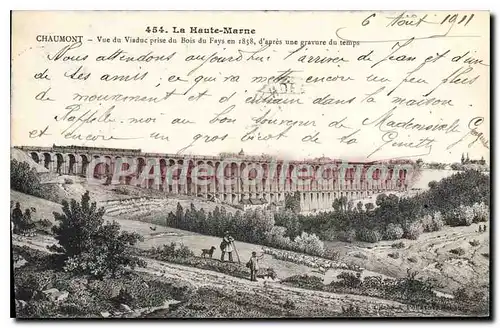 6 Août 1911
454. La Haute-Marne
CHAUMONT — Vue du Viaduc prise du Bois du Fays en 1858, d'après une gravure du temps
Nous attendons aujourd'hui l'arrivée de Jean et d'un
de ses amis, ce qui va mettre encore un peu plus
de mouvement et d'entrain dans la maison
Rappelle-moi au bon souvenir de Mademoiselle
et encore un gros bécot de ta
www.delcampe.net